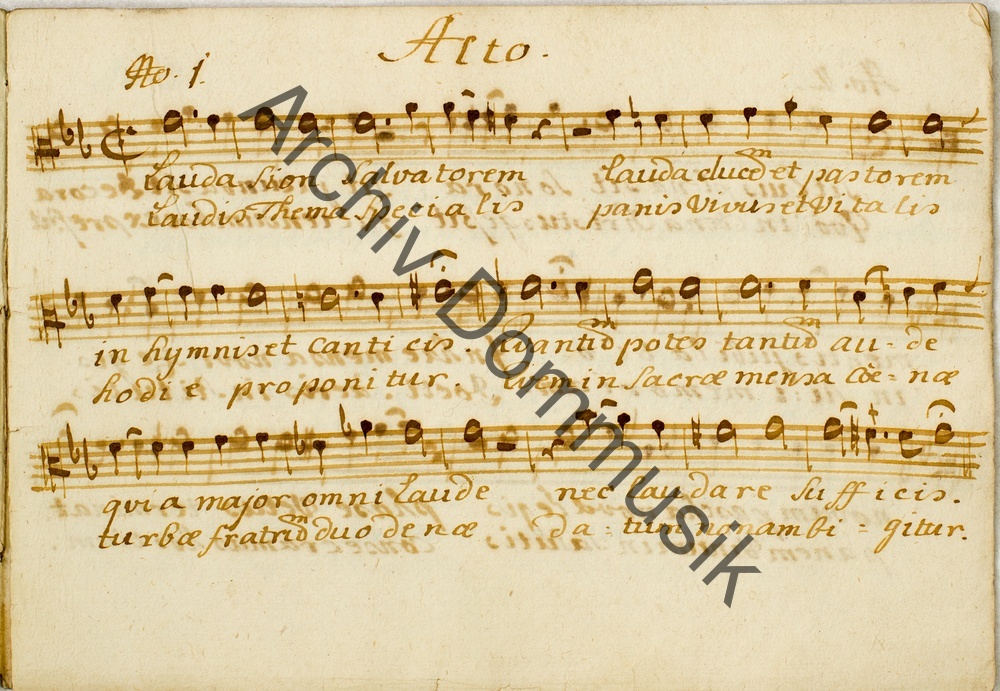 Alto.
No. 1.
Lauda Sion Salvatorem Lauda ducem et pastorem
Laudis Thema Specialis panis Vivus et Vitalis
in hymnis et canticis. Quantum potes tantum au-de
hodie proponitur. Quem in Sacræ mensa Cœ=næ
quia major omni laude nec laudare sufficis.
turbæ fratrum duodenæ da=tum non ambi=gitur.
Archiv Dommusik